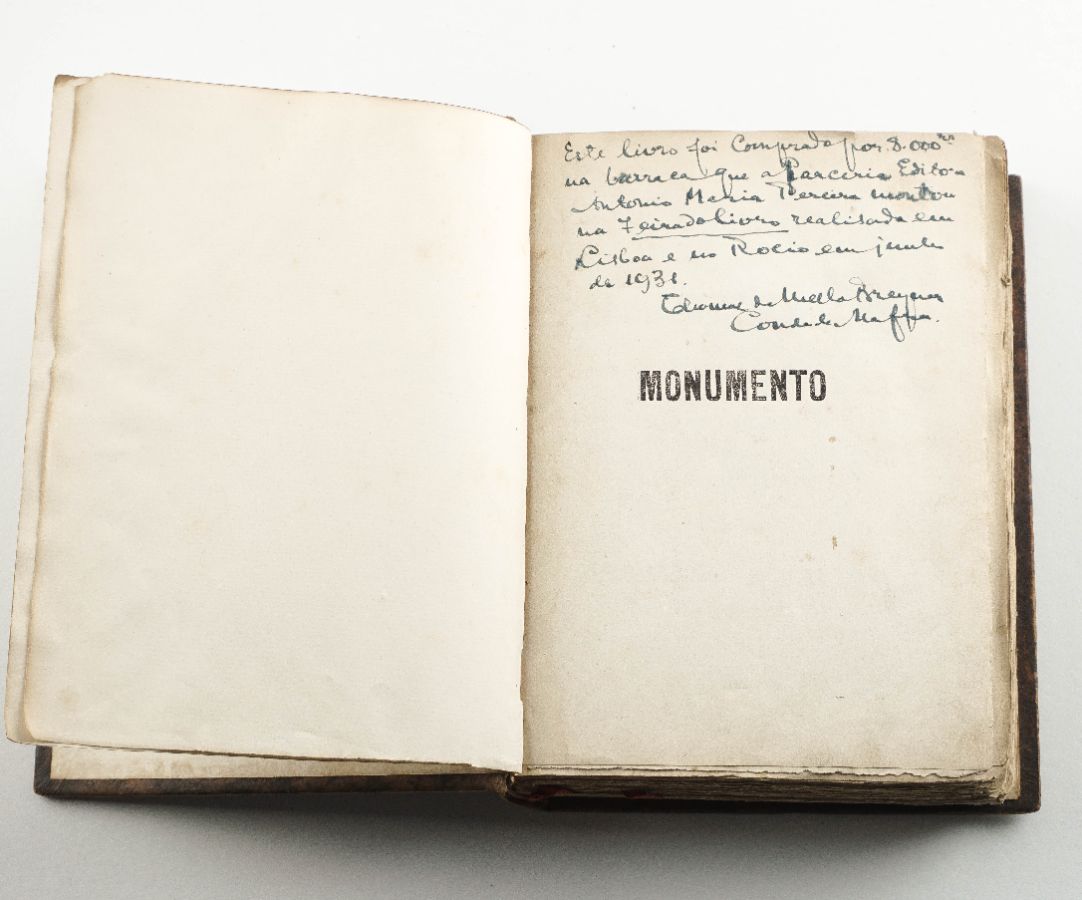 Este livro foi Comprado por 8.000 rs
na barraca que a Parceria Editora
Antonio Maria Pereira montou
na Feira do livro realisada em
Lisboa e no Rocio em junho
de 1931.
Thomaz de Mello Breyner
Conde de Mafra.
MONUMENTO